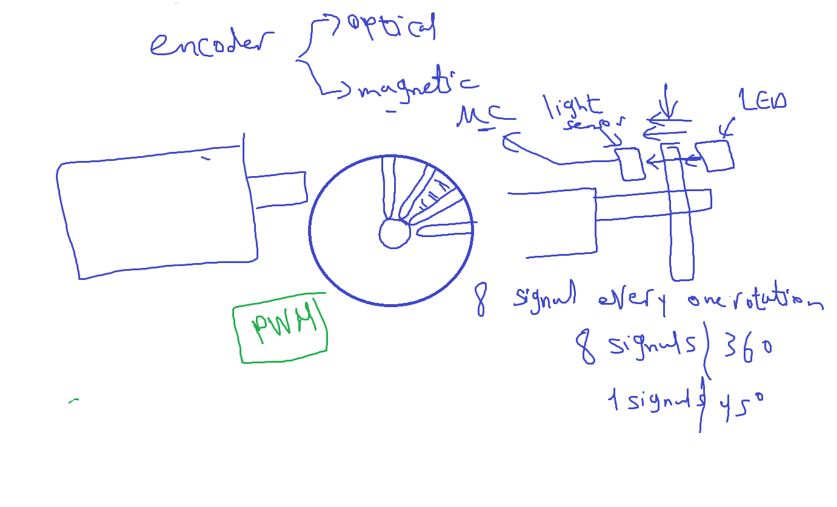 encoder
optical
magnetic
MC
light
sensor
LED
PWM
8 signal every one rotation
8 signals / 360
1 signals / 45°